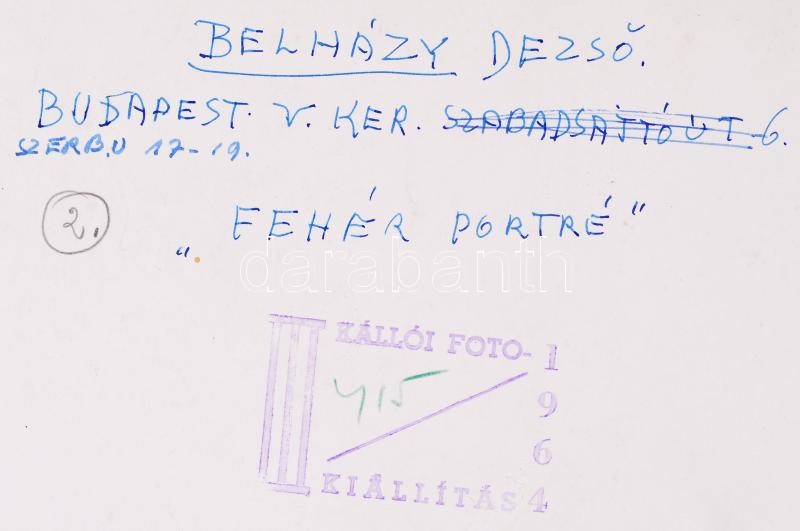 BELHÁZY DEZSŐ.
BUDAPEST. V. KER. SZABADSAJTÓ ÚT 6.
SZERB.U 17-19.
2.
„FEHÉR PORTRÉ"
darabanth
KÁLLÓI FOTO- 1
415
9
6
KIÁLLÍTÁS 4